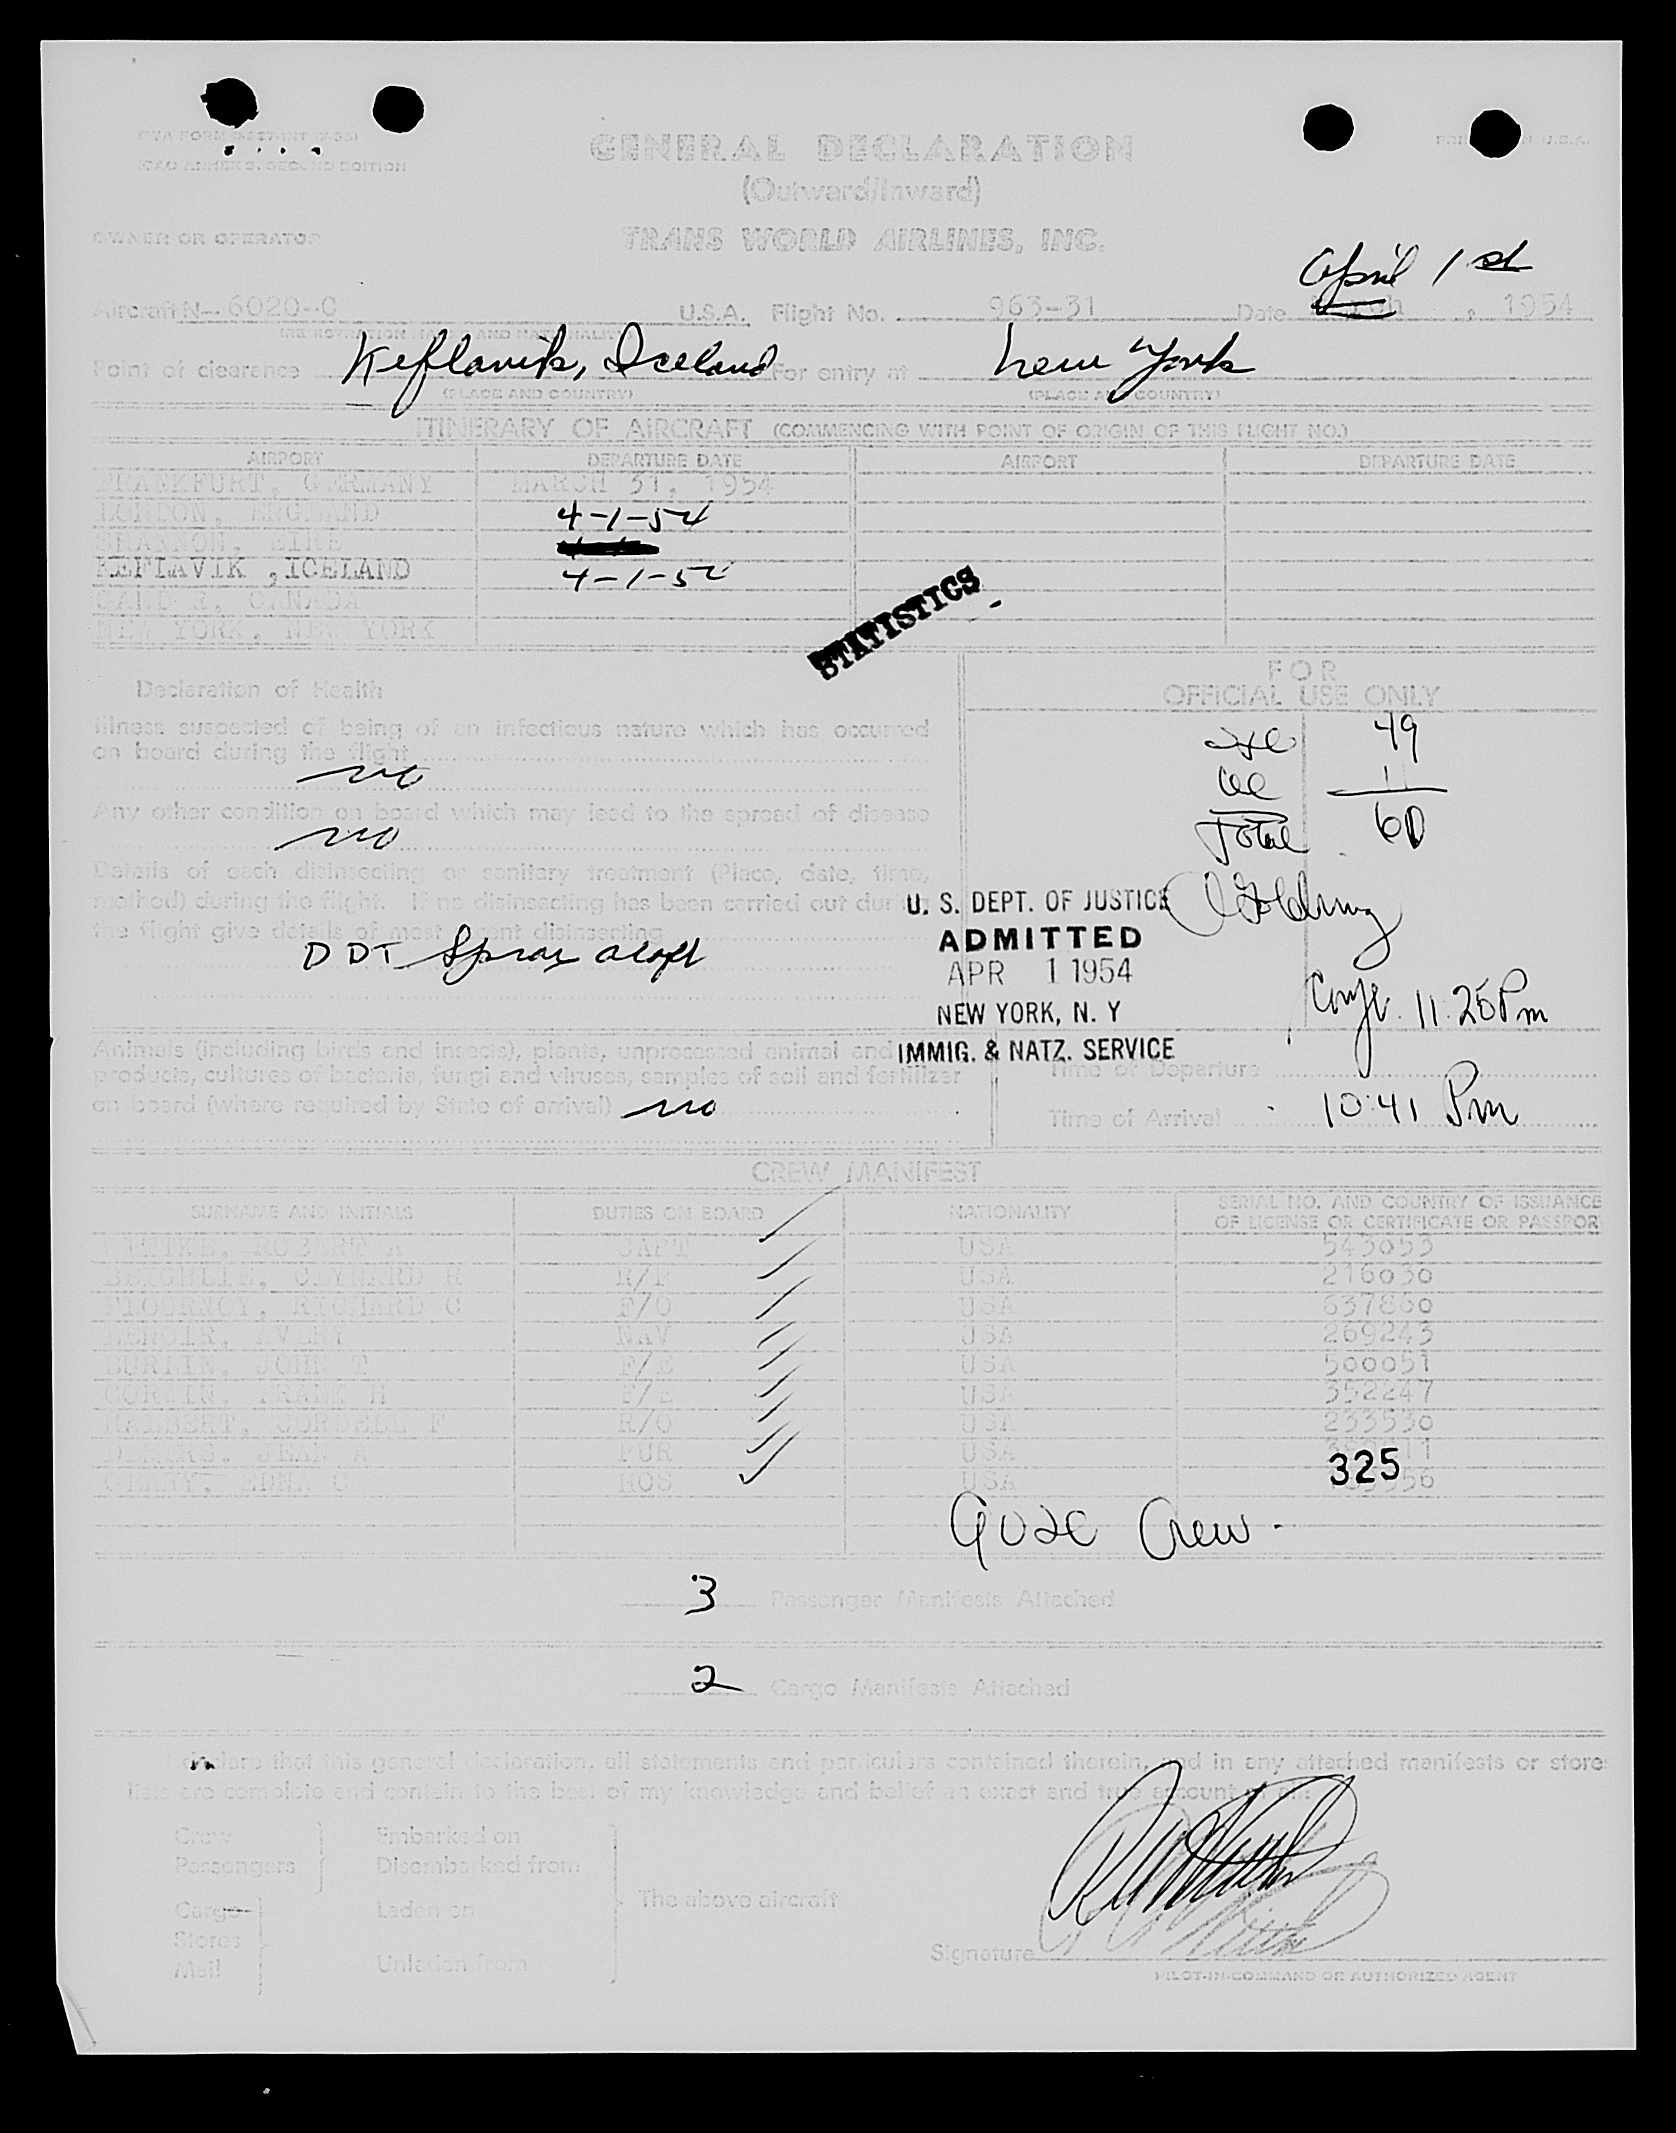 GENERAL DECLARATION
(Outward/Inward)
OWNER OR OPERATOR
TRANS WORLD AIRLINES, INC.
April 1st
Aircraft N- 6020-C U.S.A. Flight No. 963-31 Date March, 1954
Point of clearance Keflavik, Iceland For entry at New York
(PLACE AND COUNTRY) (PLACE AND COUNTRY)
ITINERARY OF AIRCRAFT (COMMENCING WITH POINT OF ORIGIN OF THIS FLIGHT NO.)
AIRPORT DEPARTURE DATE AIRPORT DEPARTURE DATE
FRANKFURT, GERMANY MARCH 31, 1954
LONDON, ENGLAND 4-1-54
SHANNON, EIRE
KEFLAVIK ,ICELAND 4-1-54
GANDER, CANADA
NEW YORK, NEW YORK
STATISTICS
Declaration of Health
FOR
OFFICIAL USE ONLY
Illness suspected of being of an infectious nature which has occurred
on board during the flight
no
49
11
Total 60
Any other condition on board which may lead to the spread of disease
no
Details of each disinsecting or sanitary treatment (Place, date, time,
method) during the flight. If no disinsecting has been carried out during
the flight give details of most recent disinsecting
DDT Spray aloft
U. S. DEPT. OF JUSTICE
ADMITTED
APR 1 1954
NEW YORK, N. Y
IMMIG. & NATZ. SERVICE
11:25 Pm
Animals (including birds and insects), plants, unprocessed animal and
products, cultures of bacteria, fungi and viruses, samples of soil and fertilizer
on board (where required by State of arrival) no
Time of Departure
Time of Arrival 10:41 Pm
CREW MANIFEST
SURNAME AND INITIALS DUTIES ON BOARD NATIONALITY SERIAL NO. AND COUNTRY OF ISSUANCE
OF LICENSE OR CERTIFICATE OR PASSPOR
CAPT USA 543053
USA 216030
FLOURNOY, RICHARD C F/O USA 637860
LENOIR, AVERY NAV USA 269243
JOHN T F/E USA 500051
CORWIN, FRANK H F/E USA 352247
R/O USA 233530
PUR USA
HOS USA
325
Crew
3 Passenger Manifests Attached
2 Cargo Manifests Attached
I declare that this general declaration, all statements and particulars contained therein, and in any attached manifests or store
lists are complete and contain to the best of my knowledge and belief an exact and true account of all:
Crew Embarked on
Passengers Disembarked from
The above aircraft
Cargo Laden on
Stores
Mail Unladen from
Signature
PILOT-IN-COMMAND OR AUTHORIZED AGENT